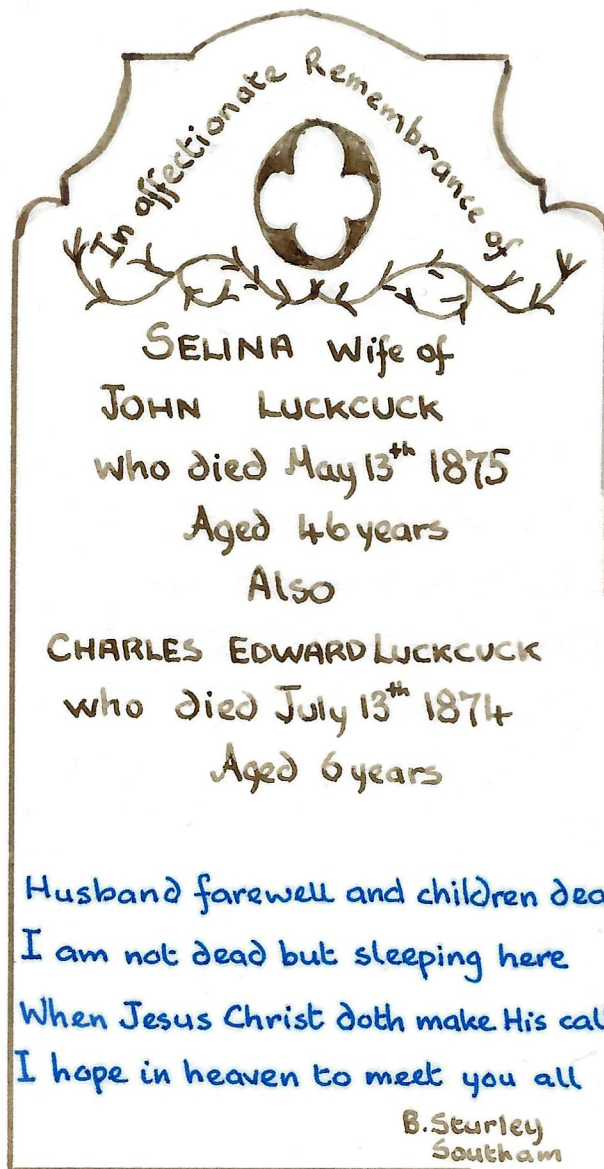 In affectionate Remembrance of
SELINA Wife of
JOHN LUCKCUCK
who died May 13th 1875
Aged 46 years
Also
CHARLES EDWARD LUCKCUCK
who died July 13th 1874
Aged 6 years
Husband farewell and children dea
I am not dead but sleeping here
When Jesus Christ doth make His cal
I hope in heaven to meet you all
B. Sturley
Southam